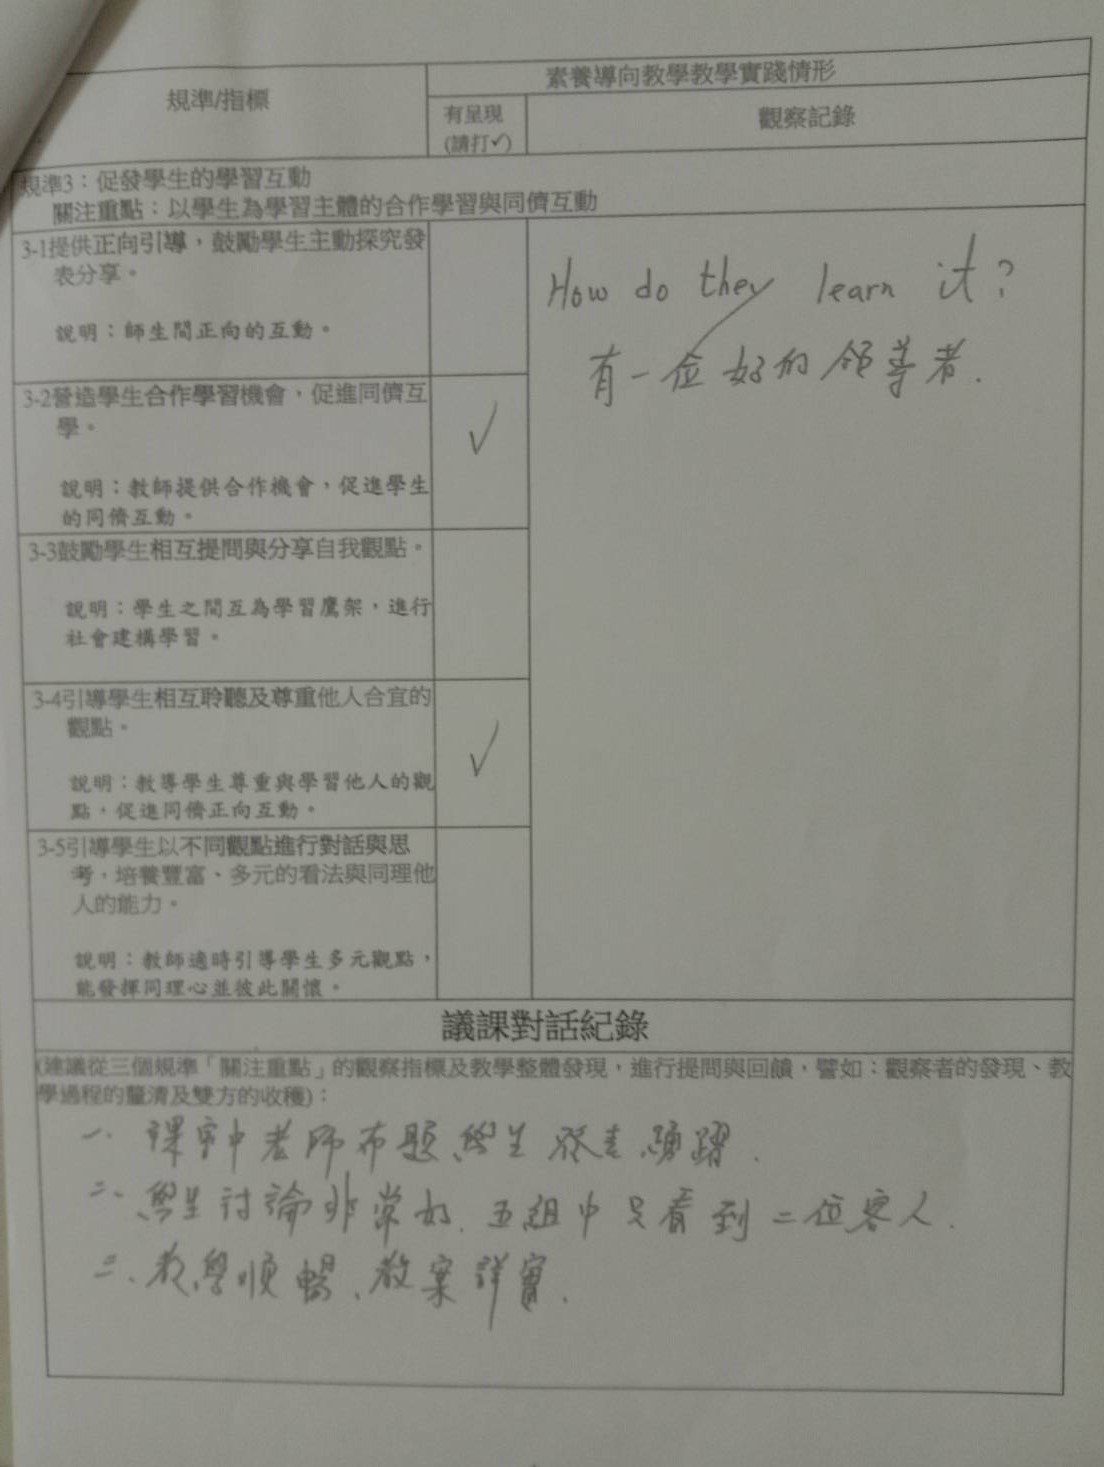 規準/指標
素養導向教學教學實踐情形
有呈現
(請打✓)
觀察記錄
規準3：促發學生的學習互動
關注重點：以學生為學習主體的合作學習與同儕互動
3-1提供正向引導，鼓勵學生主動探究發
表分享。
說明：師生間正向的互動。
How do they learn it?
有一位好的領導者.
3-2營造學生合作學習機會，促進同儕互
學。
說明：教師提供合作機會，促進學生
的同儕互動。
✓
3-3鼓勵學生相互提問與分享自我觀點。
說明：學生之間互為學習鷹架，進行
社會建構學習。
3-4引導學生相互聆聽及尊重他人合宜的
觀點。
說明：教導學生尊重與學習他人的觀
點，促進同儕正向互動。
✓
3-5引導學生以不同觀點進行對話與思
考，培養豐富、多元的看法與同理他
人的能力。
說明：教師適時引導學生多元觀點，
能發揮同理心並彼此關懷。
議課對話紀錄
(建議從三個規準「關注重點」的觀察指標及教學整體發現，進行提問與回饋，譬如：觀察者的發現、教
學過程的釐清及雙方的收穫)：
一. 課室中老師布題、學生發表踴躍.
二、學生討論非常好. 五組中只看到二位客人.
三、教學順暢、教案詳實.